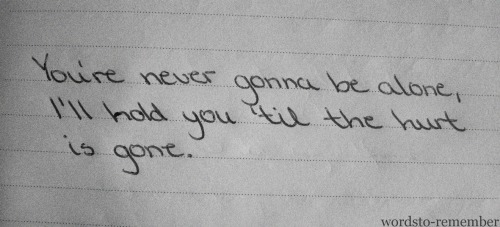 You're never gonna be alone,
I'll hold you 'til the hurt
is gone.
wordsto-remember